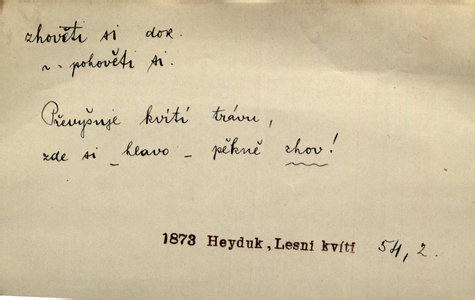 zhověti si dok.
~ pohověti si.
Převyšuje kvítí trávu,
zde si _ hlavo _ pěkně zhov!
1873 Heyduk, Lesní kvítí 54, 2.